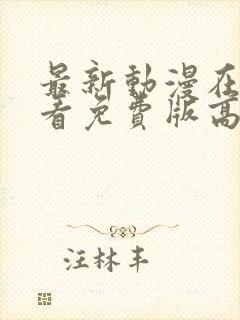 最新動漫在
看免費版高
汪林丰